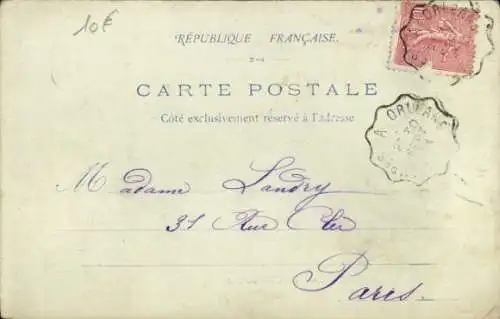 10€
RÉPUBLIQUE FRANÇAISE.
CARTE POSTALE
Côté exclusivement réservé à l'adresse
A ORLEANS
Madame Landry
31 Rue Cler
Paris.